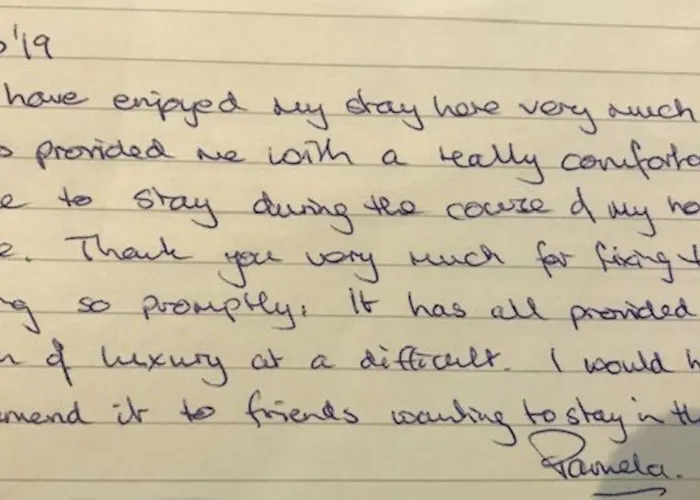 '19
have enjoyed my stay here very much
provided me with a really comforta
e to stay during the course of my ho
e. Thank you very much for fixing t
ng so promptly. It has all provided
n of luxury at a difficult. I would h
mmend it to friends wanting to stay in th
Pamela.